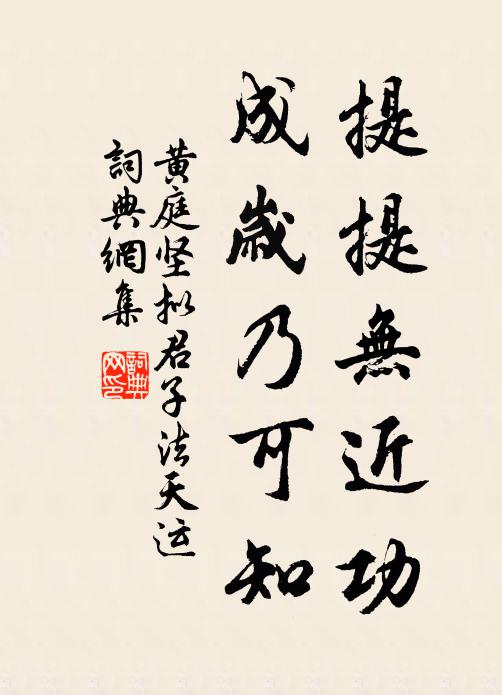 提提無近功
成歲乃可知
黄庭坚拟君子法天运
詞典網集
詞典網印